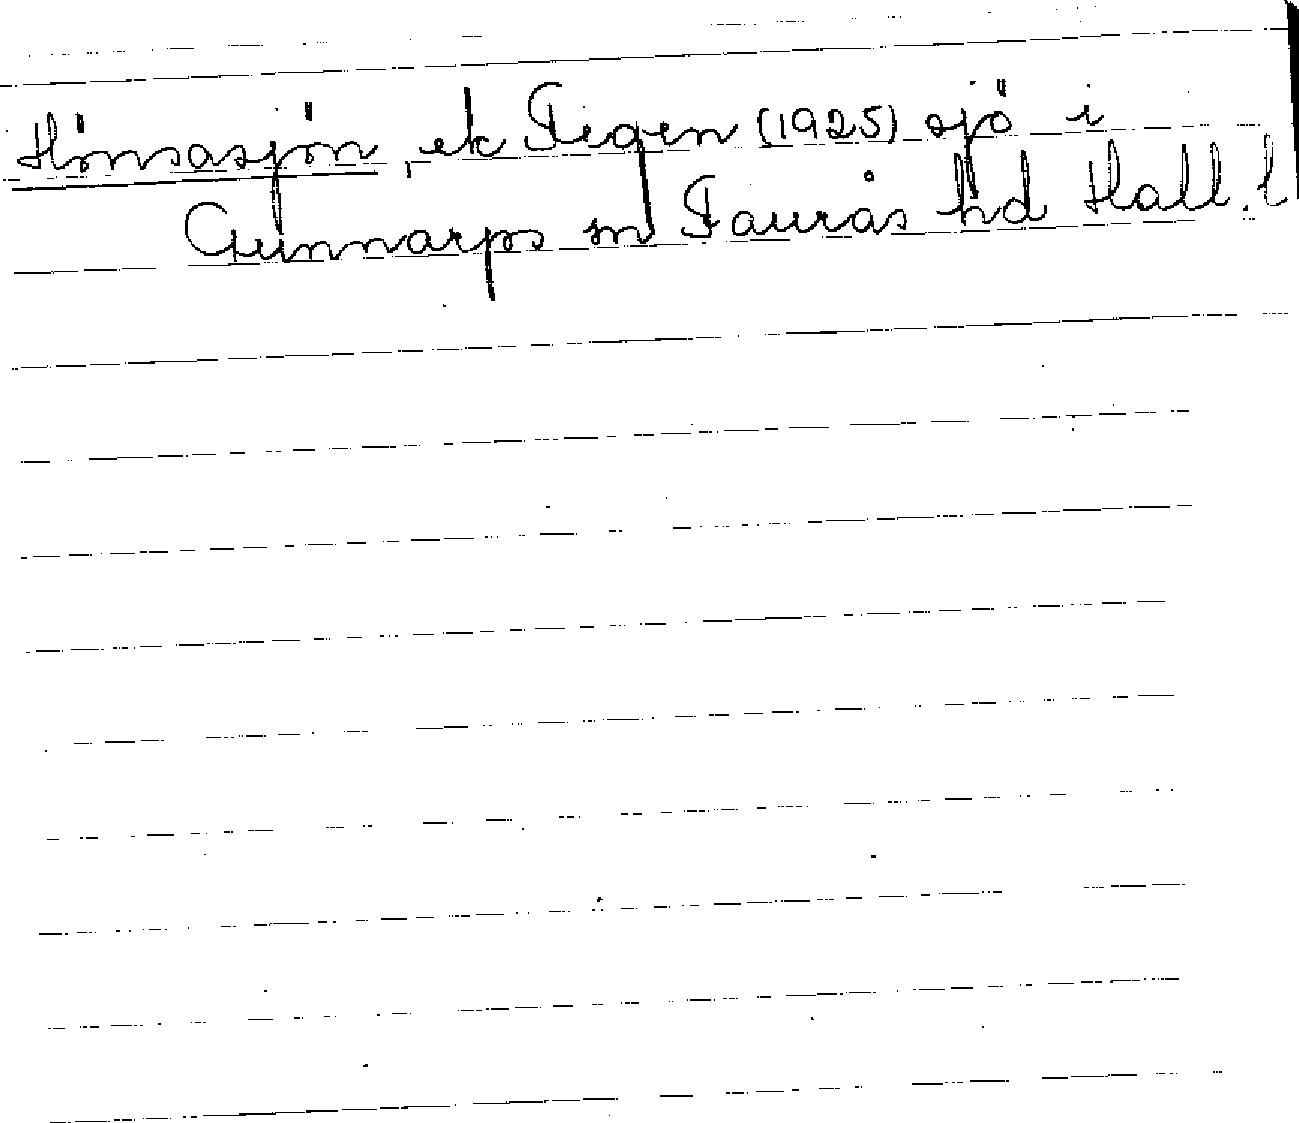 Hönsasjön, ek Fegen (1925) sjö i
Gunnarps sn Faurås hd Hall. l